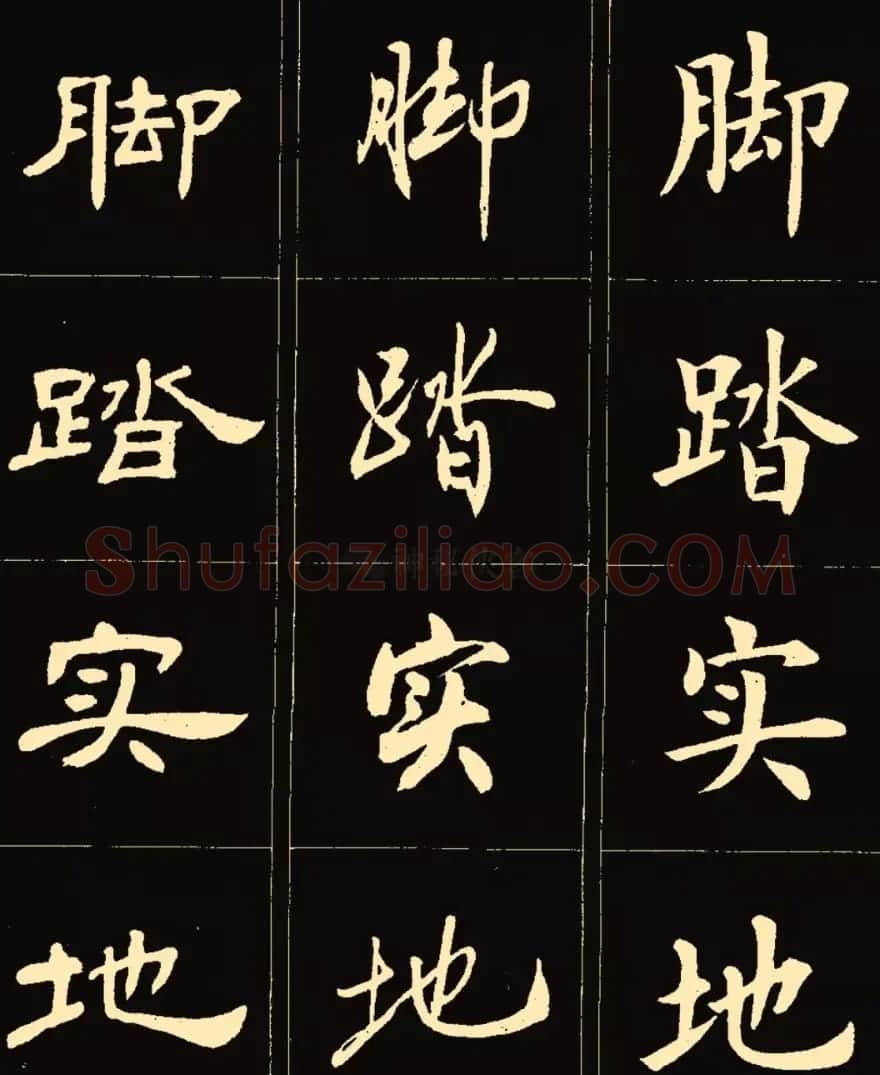 脚 脚 脚
踏 踏 踏
Shufaziliao.COM
实 实 实
地 地 地